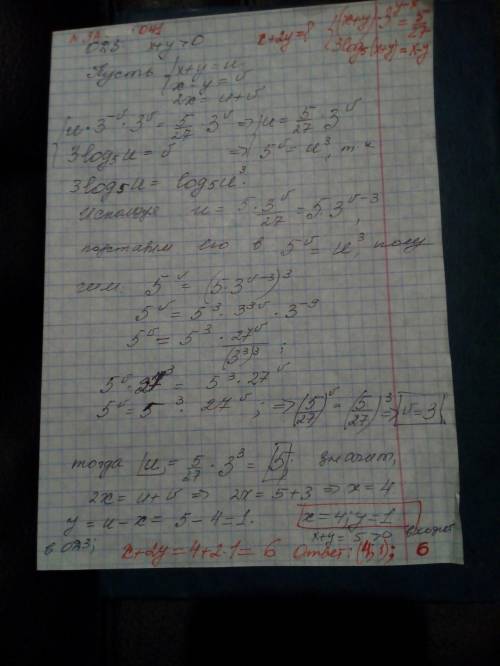 x+2y=? {(x+y)·3^{y-x}=5/27
ОДЗ x+y>0 {3log₅(x+y)=x-y
Пусть {x+y=u
x-y=v
2x=u+v
{u·3^{-v}·3^v=5/27·3^v => {u=5/27·3^v
3log₅u=v => 5^v=u³, т.к
3log₅u=log₅u³.
Используя u=5·3^v/27=5·3^{v-3},
подставим его в 5^v=u³, полу
чим 5^v=(5·3^{v-3})³
5^v=5³·3^{3v}·3^{-9}
5^v=5³·27^v/(3³)³;
5^v·27³=5³·27^v
5^v=5³·27^v; => (5/27)^v=(5/27)³ => v=3
тогда u=5/27·3³=5; значит,
2x=u+v => 2x=5+3 => x=4
y=u-x=5-4=1. x=4; y=1
x+y=5>0 входит
в ОДЗ;
x+2y=4+2·1=6 Ответ: (4;1); 6